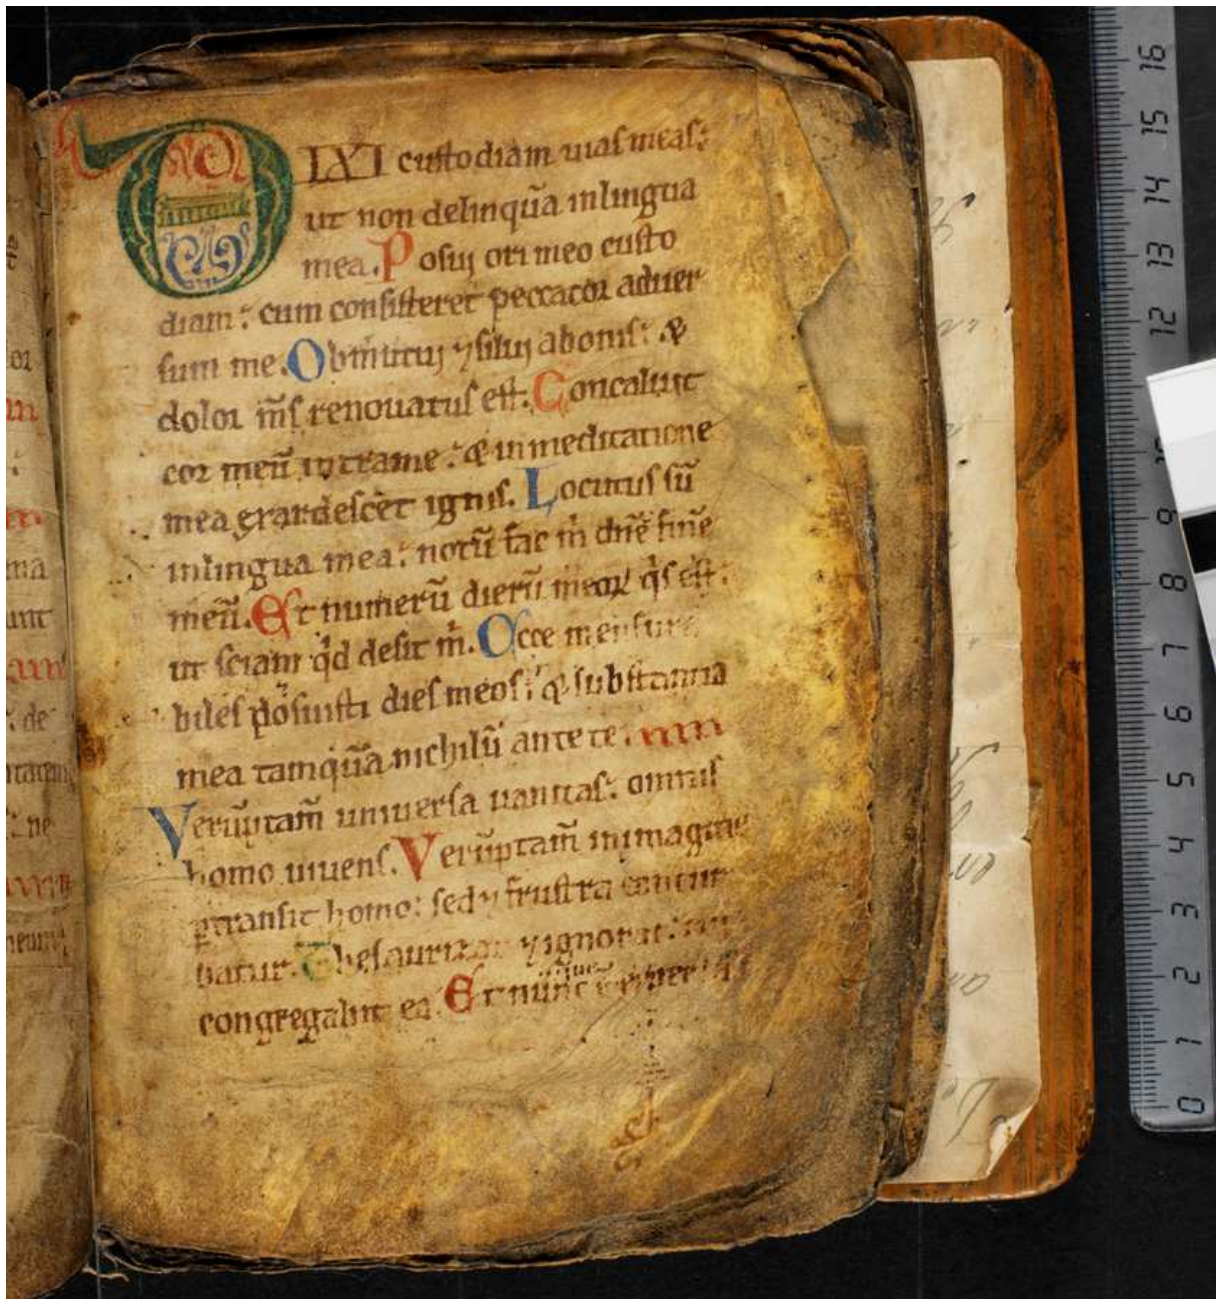 DIXI custodiam uias meas:
ut non delinquā inlingua
mea. Posui ori meo custo
diam: cum consisteret peccator aduer
sum me. Obmutui ⁊ silui abonis: &
dolor m̄s renouatus est. Concaluit
cor meū intra me: & in meditatione
mea exardescet ignis. Locutus sū
inlingua mea: notū fac m̄ dn̄e finē
meū. Et numerū dierū meoꝝ q̇s est:
ut sciam q̇d desit m̄. Ecce mensura
biles posuisti dies meos: & substantia
mea tamquā nichilū ante te.
Verūptam̄ uniuersa uanitas: omnis
homo uiuens. Verūptam̄ inimagine
ꝑtransit homo: sed ⁊ frustra contur
batur. Thesaurizat ⁊ ignorat:
congregabit ea. Et nūnc que
or
ma
unt
de
ne
16
15
14
13
12
9
8
7
6
5
4
3
2
1
0